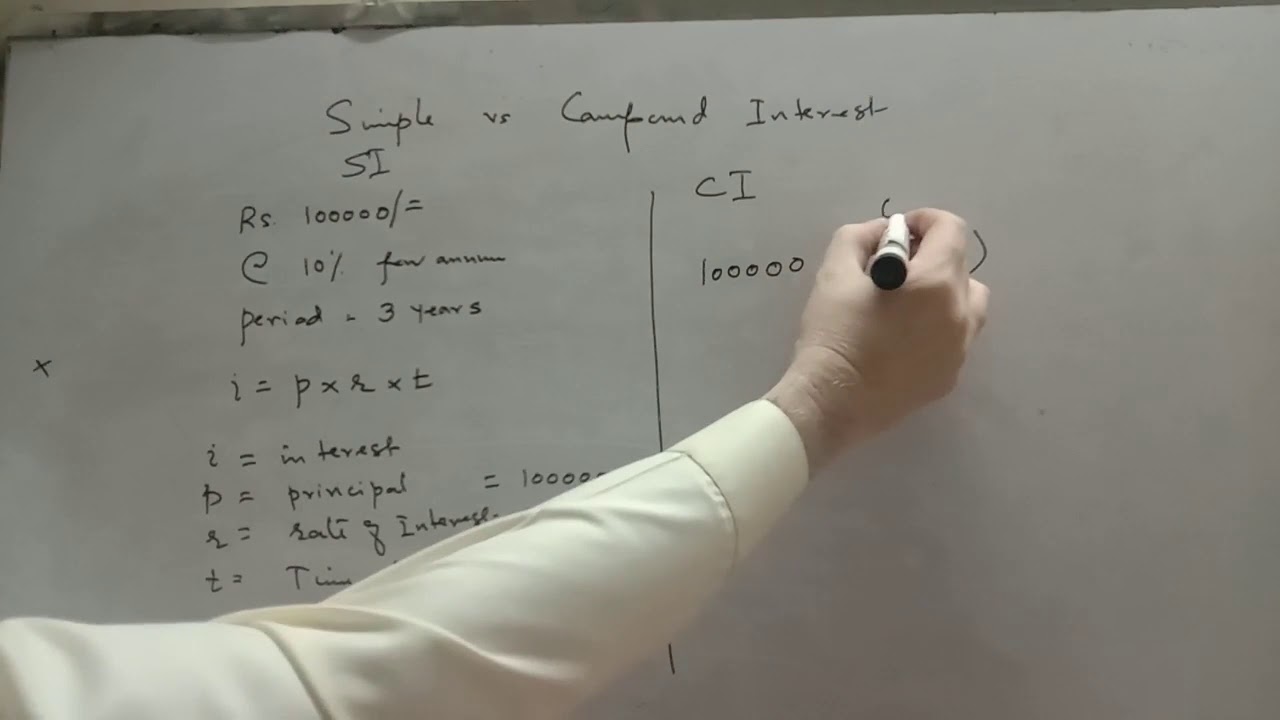 Simple vs Compound Interest
SI
Rs. 100000/=
@ 10% per annum
period - 3 years
i = p x r x t
i = interest
p = principal = 100000
r = rate of Interest
t =
CI
100000 ( )
x